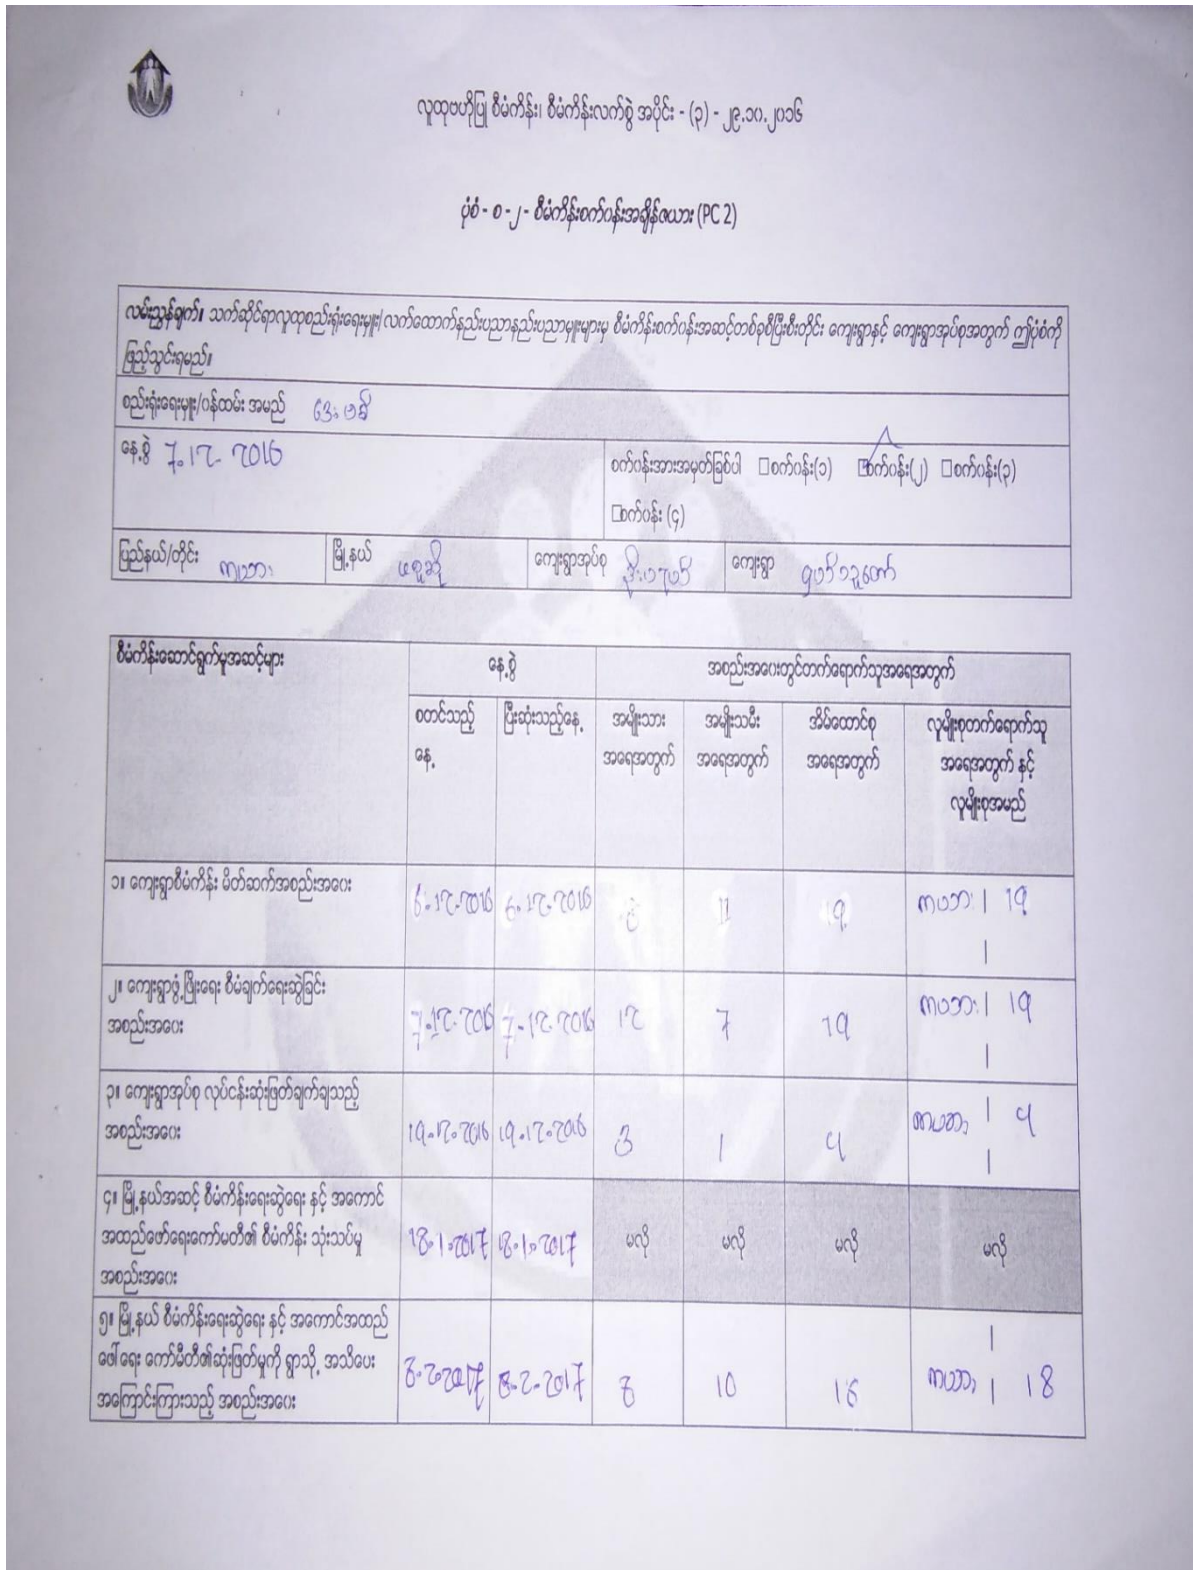 လူထုဗဟိုပြု စီမံကိန်း၊ စီမံကိန်းလက်စွဲ အပိုင်း - (၃) - ၂၉.၁၀.၂၀၁၆
ပုံစံ - စ - ၂ - စီမံကိန်းစက်ဝန်းအချိန်ဇယား (PC 2)
လမ်းညွှန်ချက်။ သက်ဆိုင်ရာလူထုစည်းရုံးရေးမှူး/လက်ထောက်နည်းပညာနည်းပညာမှူးများမှ စီမံကိန်းစက်ဝန်းအဆင့်တစ်ခုစီပြီးစီးတိုင်း ကျေးရွာနှင့် ကျေးရွာအုပ်စုအတွက် ဤပုံစံကို
ဖြည့်သွင်းရမည်။
စည်းရုံးရေးမှူး/ဝန်ထမ်း အမည်
နေ့စွဲ 7.12.2016
စက်ဝန်းအားအမှတ်ခြစ်ပါ □စက်ဝန်း(၁) □စက်ဝန်း(၂) □စက်ဝန်း(၃)
□စက်ဝန်း (၄)
ပြည်နယ်/တိုင်း မြို့နယ် ဖရူဆို ကျေးရွာအုပ်စု ကျေးရွာ
စီမံကိန်းဆောင်ရွက်မှုအဆင့်များ နေ့စွဲ အစည်းအဝေးတွင်တက်ရောက်သူအရေအတွက်
စတင်သည့် ပြီးဆုံးသည့်နေ့ အမျိုးသား အမျိုးသမီး အိမ်ထောင်စု လူမျိုးစုတက်ရောက်သူ
နေ့ အရေအတွက် အရေအတွက် အရေအတွက် အရေအတွက် နှင့်
လူမျိုးစုအမည်
၁။ ကျေးရွာစီမံကိန်း မိတ်ဆက်အစည်းအဝေး 6.12.2016 6.12.2016 8 11 19 ကယား | 19
၂။ ကျေးရွာဖွံ့ဖြိုးရေး စီမံချက်ရေးဆွဲခြင်း
အစည်းအဝေး 7.12.2016 7.12.2016 12 7 19 ကယား | 19
၃။ ကျေးရွာအုပ်စု လုပ်ငန်းဆုံးဖြတ်ချက်ချသည့်
အစည်းအဝေး 19.12.2016 19.12.2016 3 1 4 ကယား | 4
၄။ မြို့နယ်အဆင့် စီမံကိန်းရေးဆွဲရေး နှင့် အကောင်
အထည်ဖော်ရေးကော်မတီ၏ စီမံကိန်း သုံးသပ်မှု
အစည်းအဝေး 18.1.2017 18.1.2017 မလို မလို မလို မလို
၅။ မြို့နယ် စီမံကိန်းရေးဆွဲရေး နှင့် အကောင်အထည်
ဖေါ်ရေး ကော်မီတီ၏ဆုံးဖြတ်မှုကို ရွာသို့ အသိပေး
အကြောင်းကြားသည့် အစည်းအဝေး 8.2.2017 8.2.2017 8 10 ကယား | 18